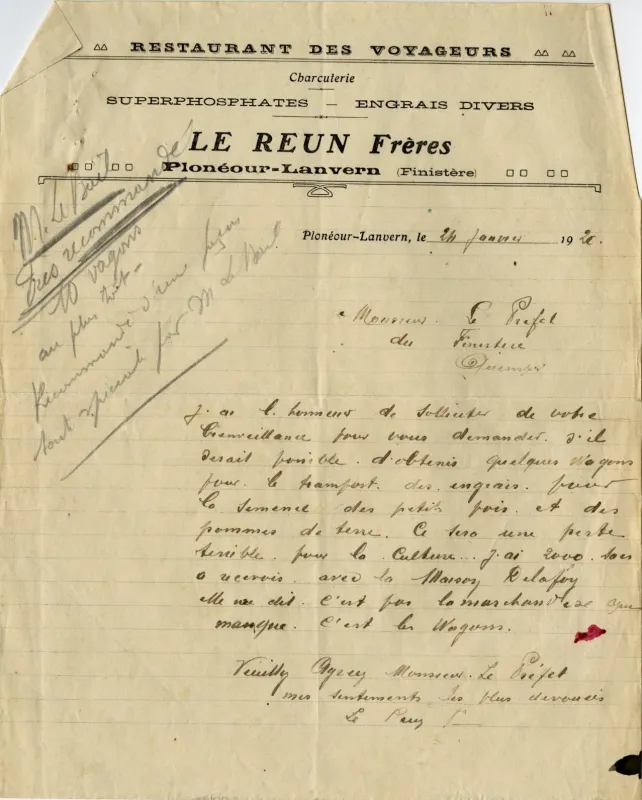 RESTAURANT DES VOYAGEURS
Charcuterie
SUPERPHOSPHATES — ENGRAIS DIVERS
LE REUN Frères
Plonéour-Lanvern (Finistère)
Plonéour-Lanvern, le 24 Janvier 1920.
M. Le Bail
très recommandé
10 vagons
au plus tôt -
Recommandé d'une façon
tout spéciale par M Le Bail
Monsieur. Le Prefet
du Finistere
Quimper
J. ai l. honneur de solliciter de votre
bienveillance pour vous demander. s'il
serait possible. d'obtenir quelques Wagons
pour. le transport. des. engrais. pour
la semence des petits pois. et des
pommes de terre. Ce sera une perte
terrible. pour la Culture... J. ai 2000. sacs
a recevoir. avec la Maison Delafoy
Me dit. C'est pas la marchandise que
manque. C'est les Wagons.
Veuillez Agreez Monsieur. Le Préfet
mes sentements les plus devoués
Le Reun